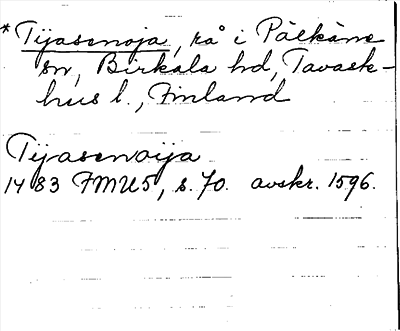 * Tijasenoja, rå i Pälkäne
sn, Birkala hd, Tavast-
hus l., Finland
Tijasenoija
1483 FMU5, s. 70. avskr. 1596.